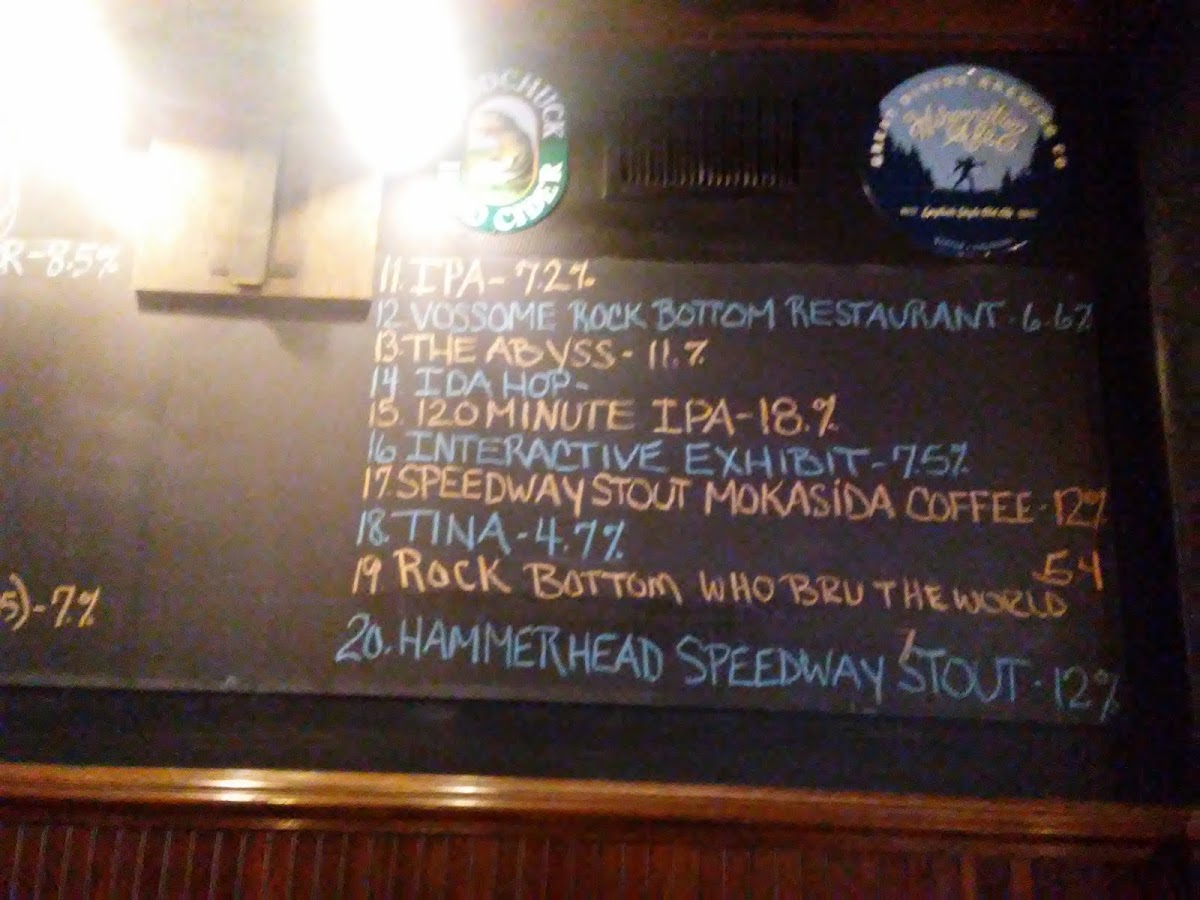 OCHUCK
CIDER
GREAT DIVIDE BREWING CO
R-8.5%
11. IPA- 7.2%
12. VOSSOME ROCK BOTTOM RESTAURANT - 6.6%
13. THE ABYSS - 11.%
14 IDA HOP-
15. 120 MINUTE IPA-18.%
16 INTERACTIVE EXHIBIT-7.5%
17. SPEEDWAY STOUT MOKASIDA COFFEE - 12%
18. TINA-4.7%
5.4
19. ROCK BOTTOM WHO BRU THE WORLD
5)-7.%
20. HAMMERHEAD SPEEDWAY STOUT - 12%